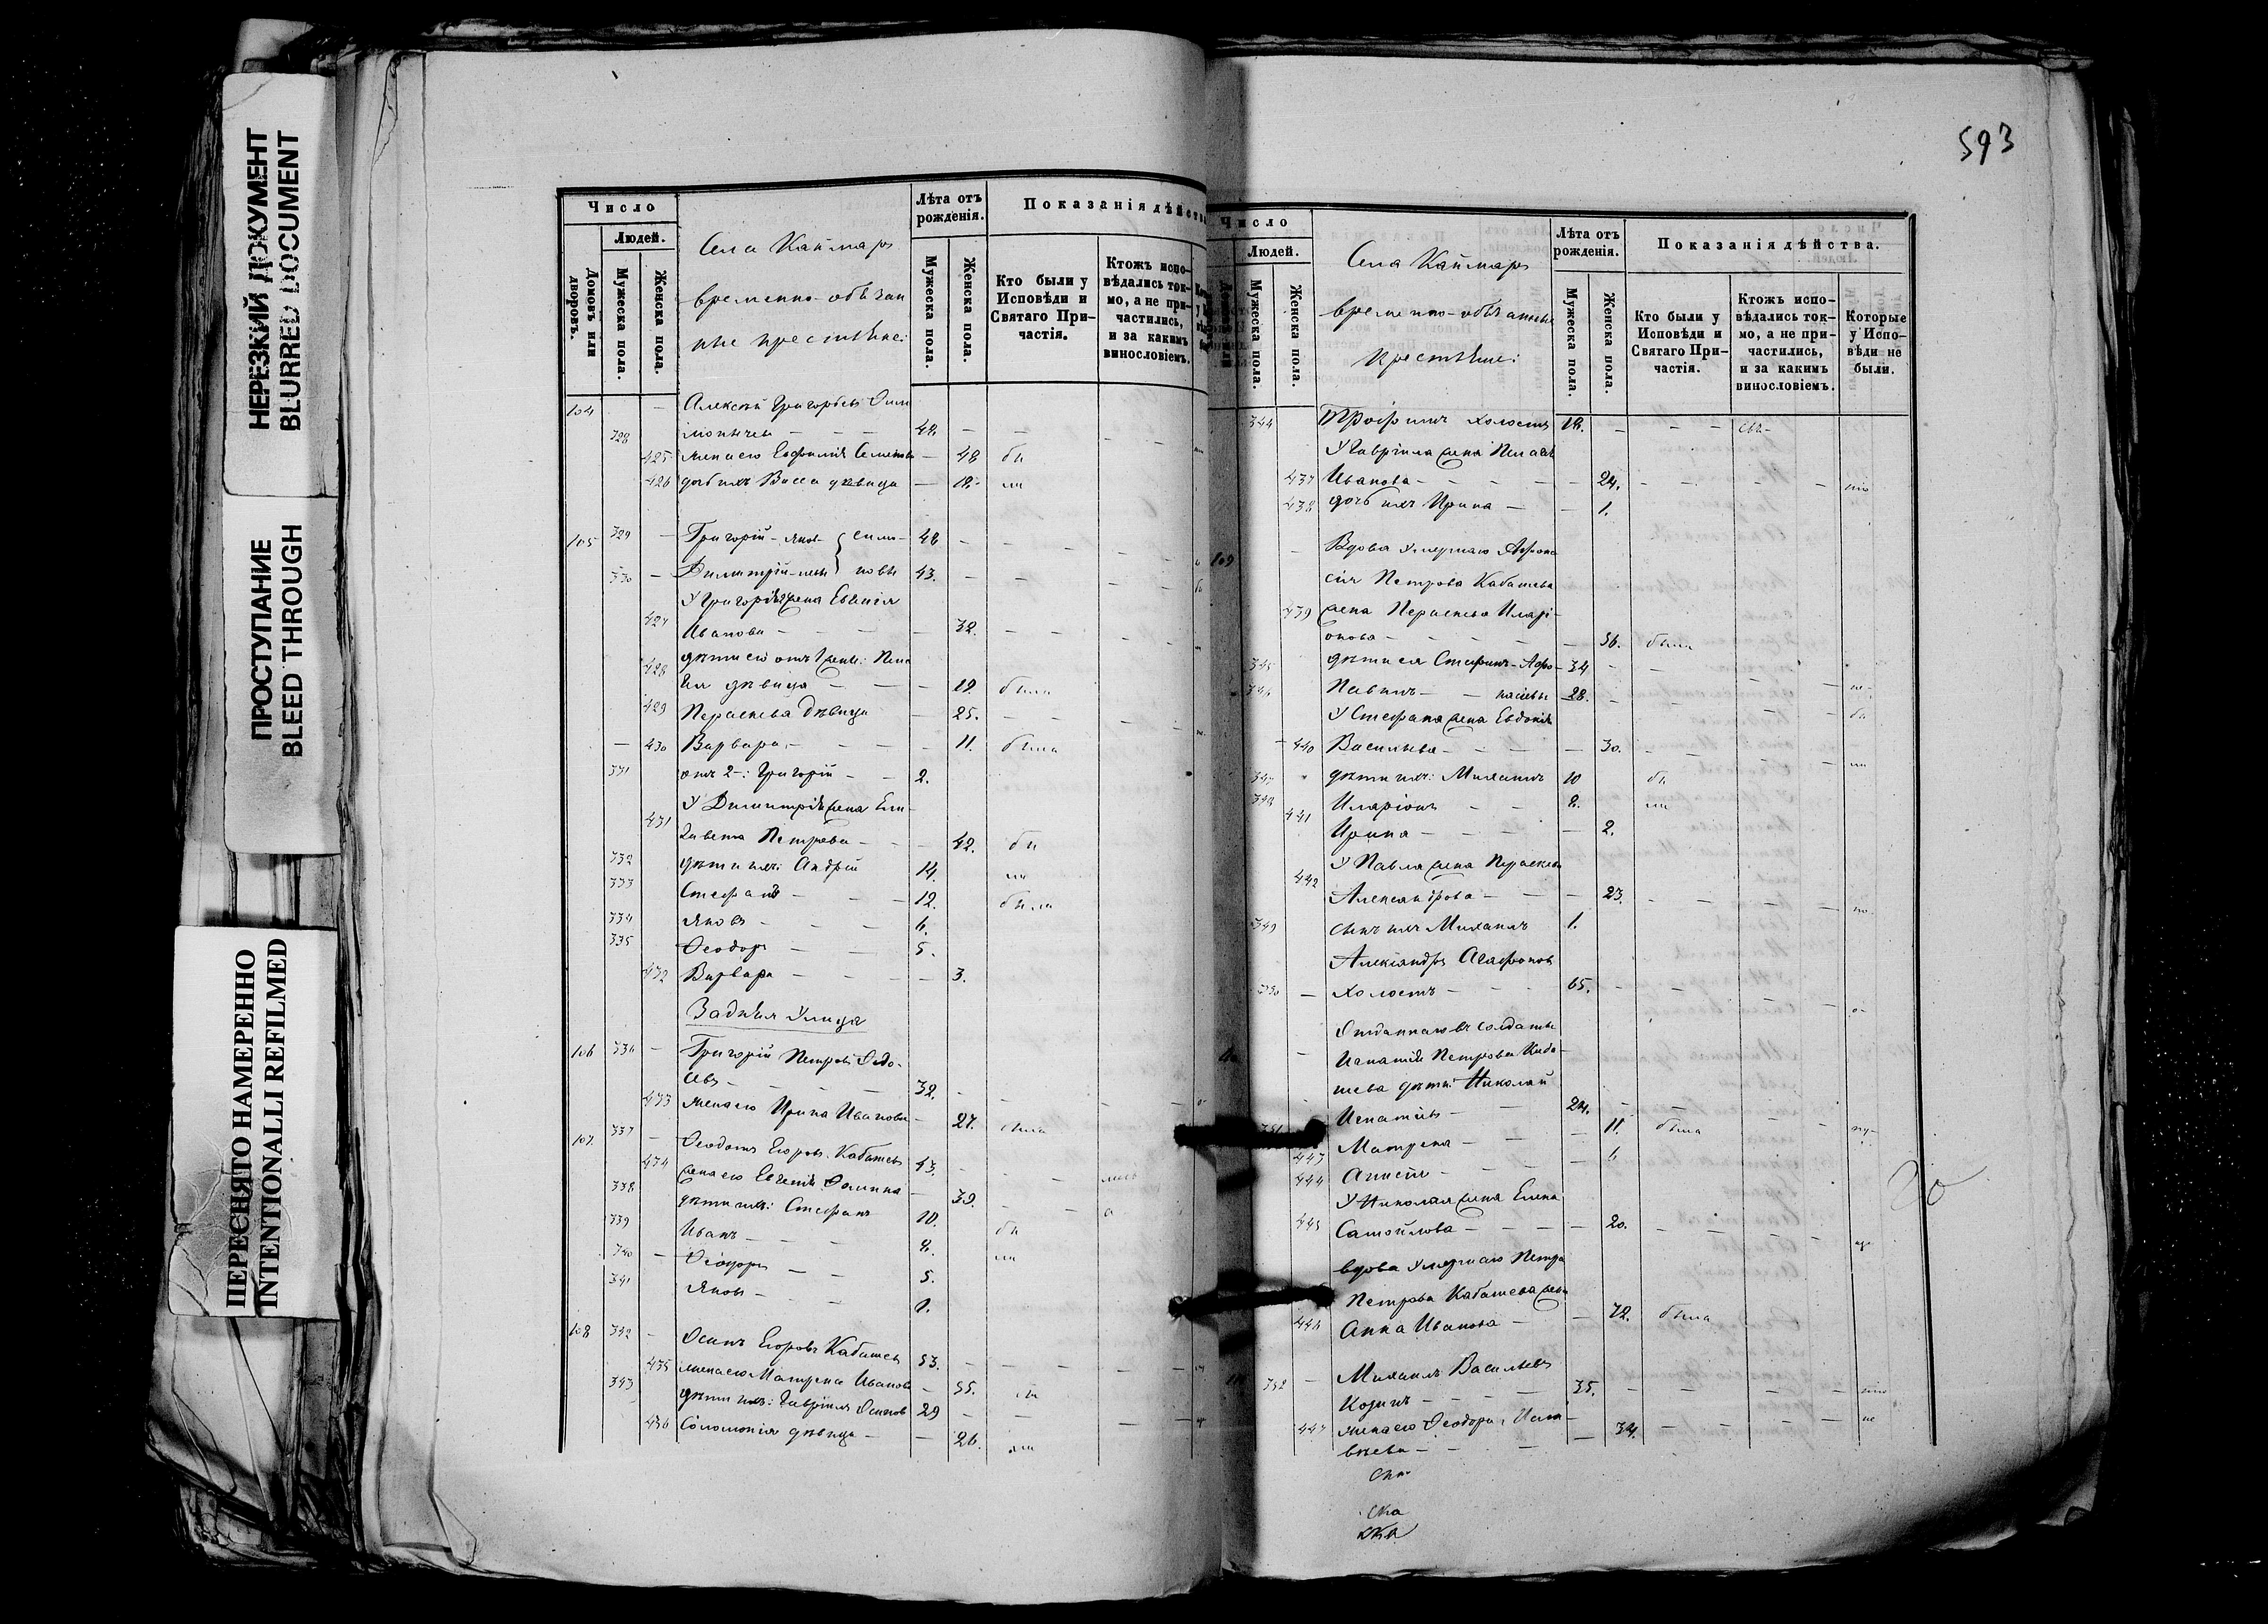 НЕРЕЗКИЙ ДОКУМЕНТ
BLURRED DOCUMENT
ПРОСТУПАНИЕ
BLEED THROUGH
ПЕРЕСНЯТО НАМЕРЕННО
INTENTIONALLI REFILMED
Число
Людей.
Домовъ или дворовъ.
Мужеска пола.
Женска пола.
Села Каймаръ
временно-обязан
ные крестьяне:
Лѣта отъ рожденія.
Мужеска пола.
Женска пола.
Показанія дѣйства
Кто были у Исповѣди и Святаго Причастія.
Ктожъ испо-
вѣдались ток-
мо, а не при-
частились,
и за какимъ
винословіемъ.
104 Алексѣй Григорьевъ
328 48.
425 жена его Евфимія Семенова 48 бы
426 дочь ихъ Васса дѣвица 18. ли
105 329 Григорій Яков 48
330 Димитрій левы 43.
У Григорія жена Евгенія
427 Иванова 32.
428 дѣти его отъ 1 жены:
дѣвица 19. была
429 Параскева дѣвица 25.
430 Варвара 11. была
331 отъ 2-й: Григорій 2.
У Димитрія жена Ели-
431 завета Петрова 42. бы
332 дѣти ихъ: Андрей 14. ли
333 Стефанъ 12. были
334 Яковъ 6.
335 Ѳеодоръ 5.
432 Варвара 3.
Задняя Улица
106 336 Григорій Петровъ
32.
433 жена его Ирина Иванова 27. была
107. 337 Ѳеодотъ Егоровъ Кабашевъ 43.
434 жена его Евгенія 39.
338 дѣти ихъ: Стефанъ 10.
339 Иванъ 8. бы
340 Ѳеодоръ 5. ли
341 Яковъ 1.
108 342 Осипъ Егоровъ Кабашевъ 53.
435 жена его Матрена Иванова 55. бы
343 дѣти ихъ: Гавріилъ Осиповъ 29
436 Соломонія дѣвица 26. ли
593
Число
Людей.
Мужеска пола.
Женска пола.
Села Каймаръ
временно-обязанные
крестьяне:
Лѣта отъ рожденія.
Мужеска пола.
Женска пола.
Показанія дѣйства.
Кто были у
Исповѣди и
Святаго При-
частія.
Ктожъ испо-
вѣдались ток-
мо, а не при-
частились,
и за какимъ
винословіемъ.
Которые
у Испо-
вѣди не
были.
344 Трофимъ холостъ 18.
У Гавріила жена Пелагея
437 Иванова 24.
438 дочь ихъ Ирина 1.
109 Вдова умершаго Афана
сія Петрова Кабашева
439 жена Параскева Иларі-
онова 56. была
345 дѣти ея Стефанъ Афа- 34
346 Павелъ насіевы 28.
У Стефана жена Евдокія
440 Васильева 30.
347 дѣти ихъ: Михаилъ 10 бы
348 Иларіонъ 8. ли
441 Ирина 2.
У Павла жена Параскева
442 Александрова 23.
349 сынъ ихъ Михаилъ 1.
Александръ Агафоновъ
350 холостъ 65.
Отданнаго въ солдаты
Игнатія Петрова Каба-
шева дѣти: Николай
351 Игнатьевъ 24.
443 Матрена 11. была
444 Анисія 6
У Николая жена Елена
445 Самойлова 20.
вдова умершаго Петра
Петрова Кабашева жена
446 Анна Иванова 72. была
352 Михаилъ Васильевъ
Козинъ 35.
447 жена его Ѳеодора
34.